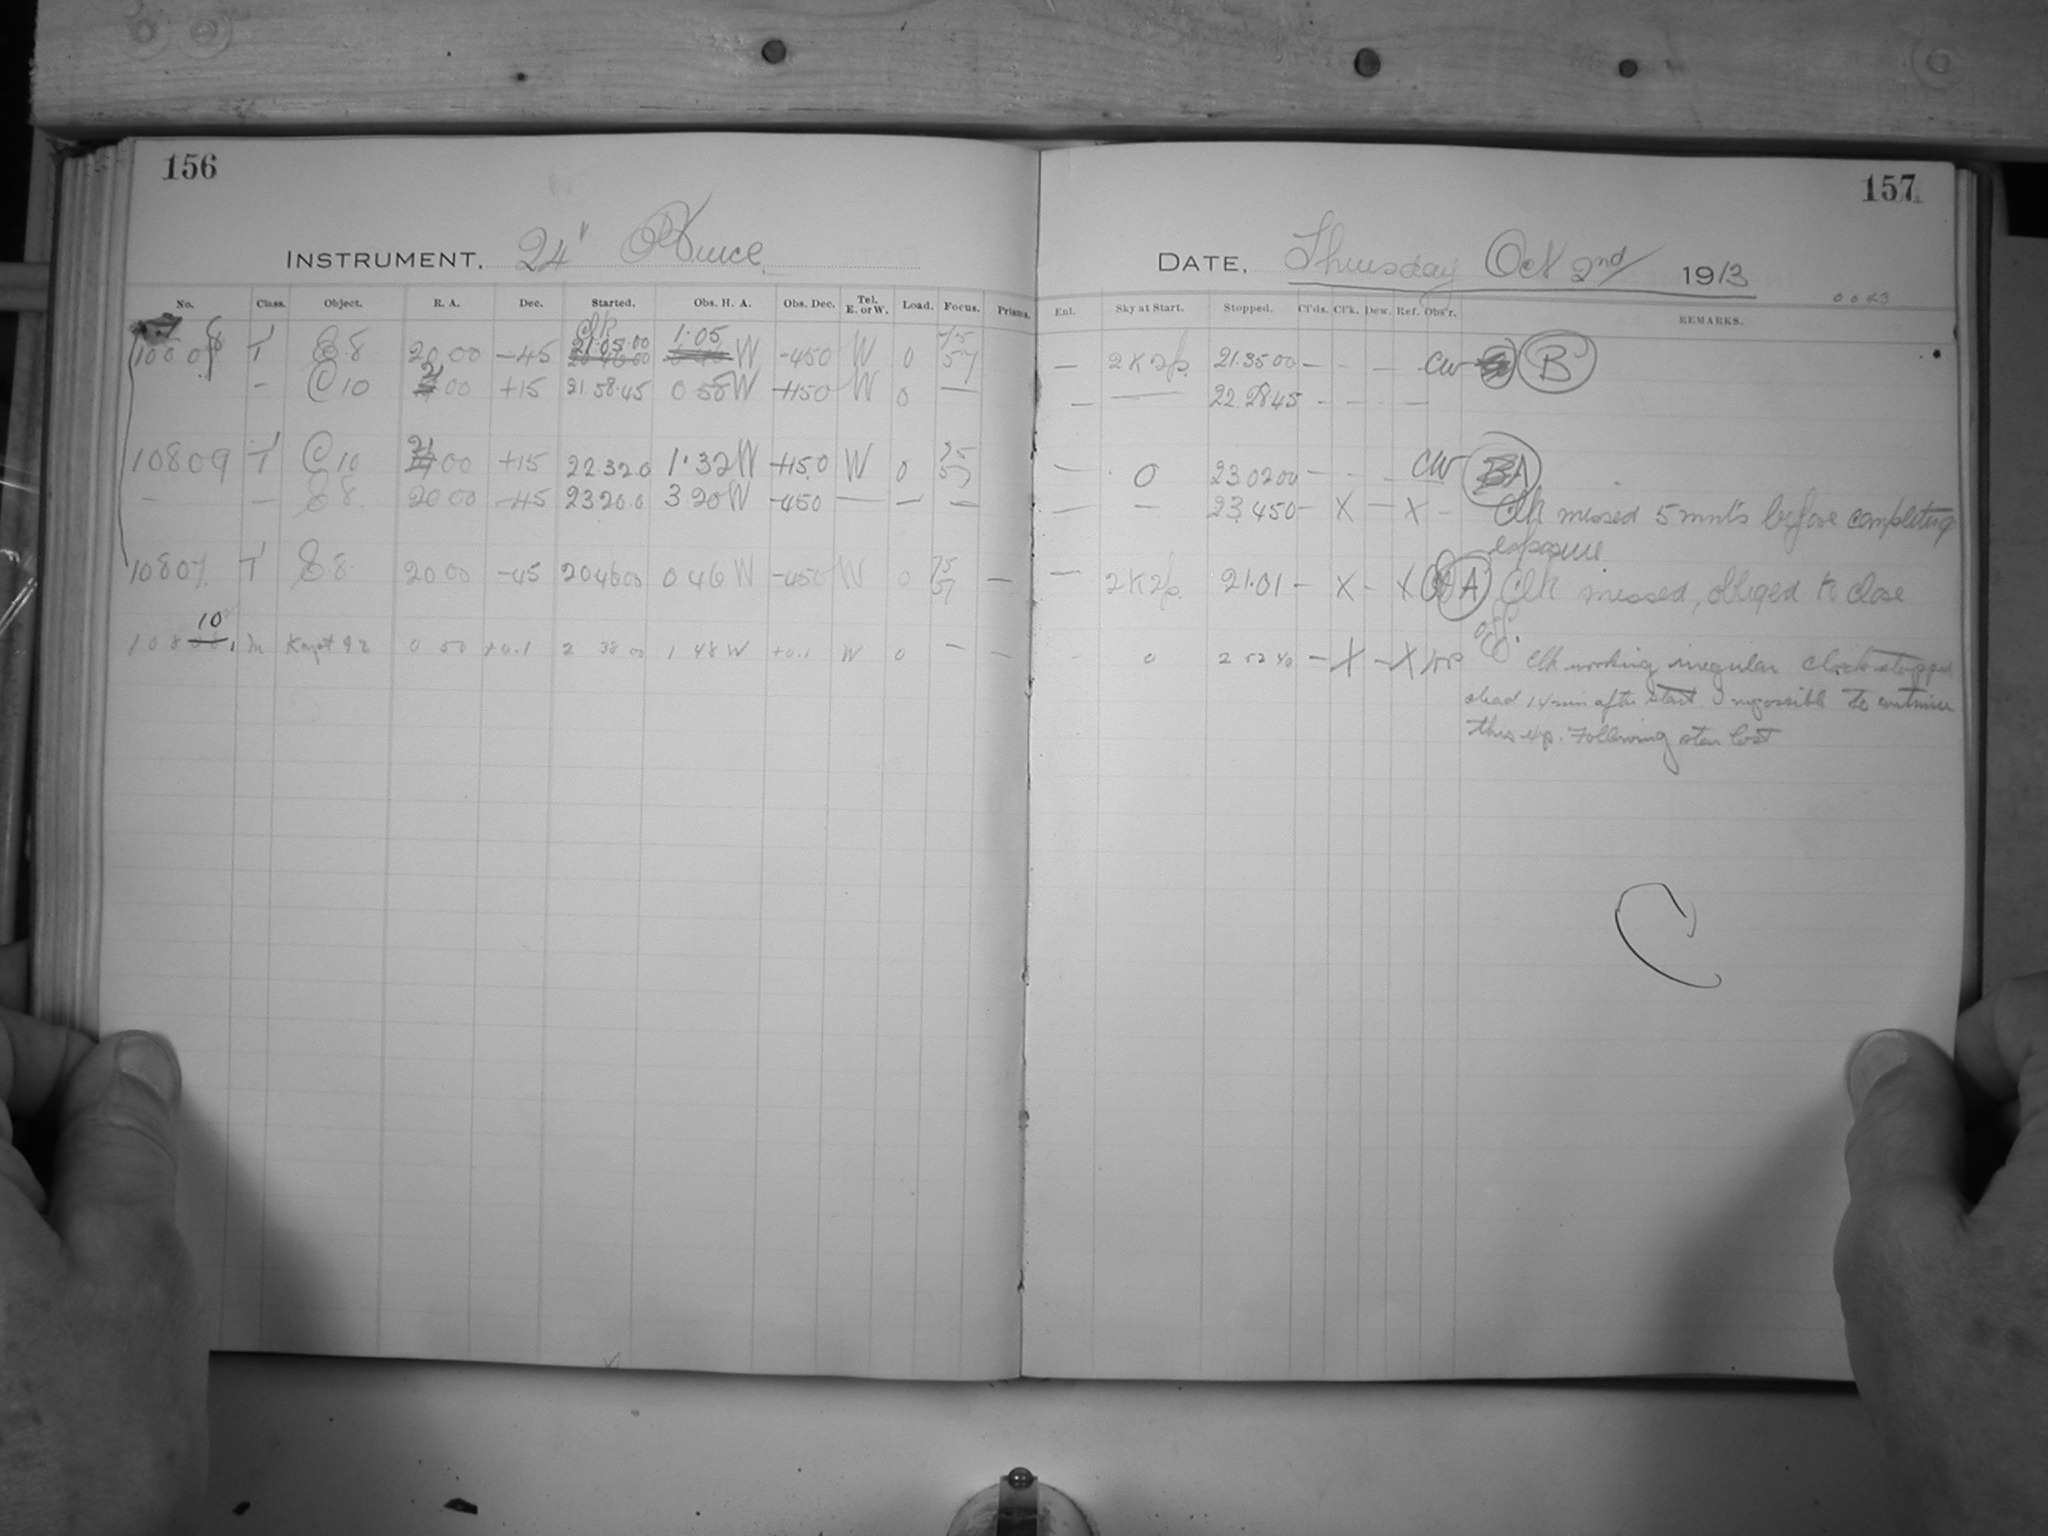 156
157
INSTRUMENT. 24" Bruce
DATE, Thursday Oct 2nd 1913
No. Class. Object. R. A. Dec. Started. Obs. H. A. Obs. Dec. Tel. E. or W. Load. Focus. Prisms. Enl. Sky at Start. Stopped. Cl'ds. Cl'k. Dew. Ref. Obs'r. REMARKS.
T 8 20 00 -45 21.05.00 1.05 W -450 W 0 — 2K2p. 21.35 00 — - - — CW B
- C 10 00 +15 21.58.45 0 58 W +150 W 0 — — — 22 28 45 - - - —
10809 T C 10 21 00 +15 22 32 0 1.32 W +15.0 W 0 — 0 23 02 00 — - - — CW A
— — 8 20 00 -45 23 20 0 3 20 W -450 — — — — — 23.45 0 - X — X - Clk missed 5 mnts before completing
exposure
10807 T 8 20 00 -45 20 46 00 0 46 W -450 W 0 — — 2K2p. 21.01 - X - X A Clk missed, obliged to close
off.
10 M Kapt 92 0 50 +0.1 2 38 00 1 48 W +0.1 W 0 — — - 0 2 52 40 - X - X Clk working irregular clock stopped
dead 14 min after start. Impossible to continue
this exp. Following star lost
C